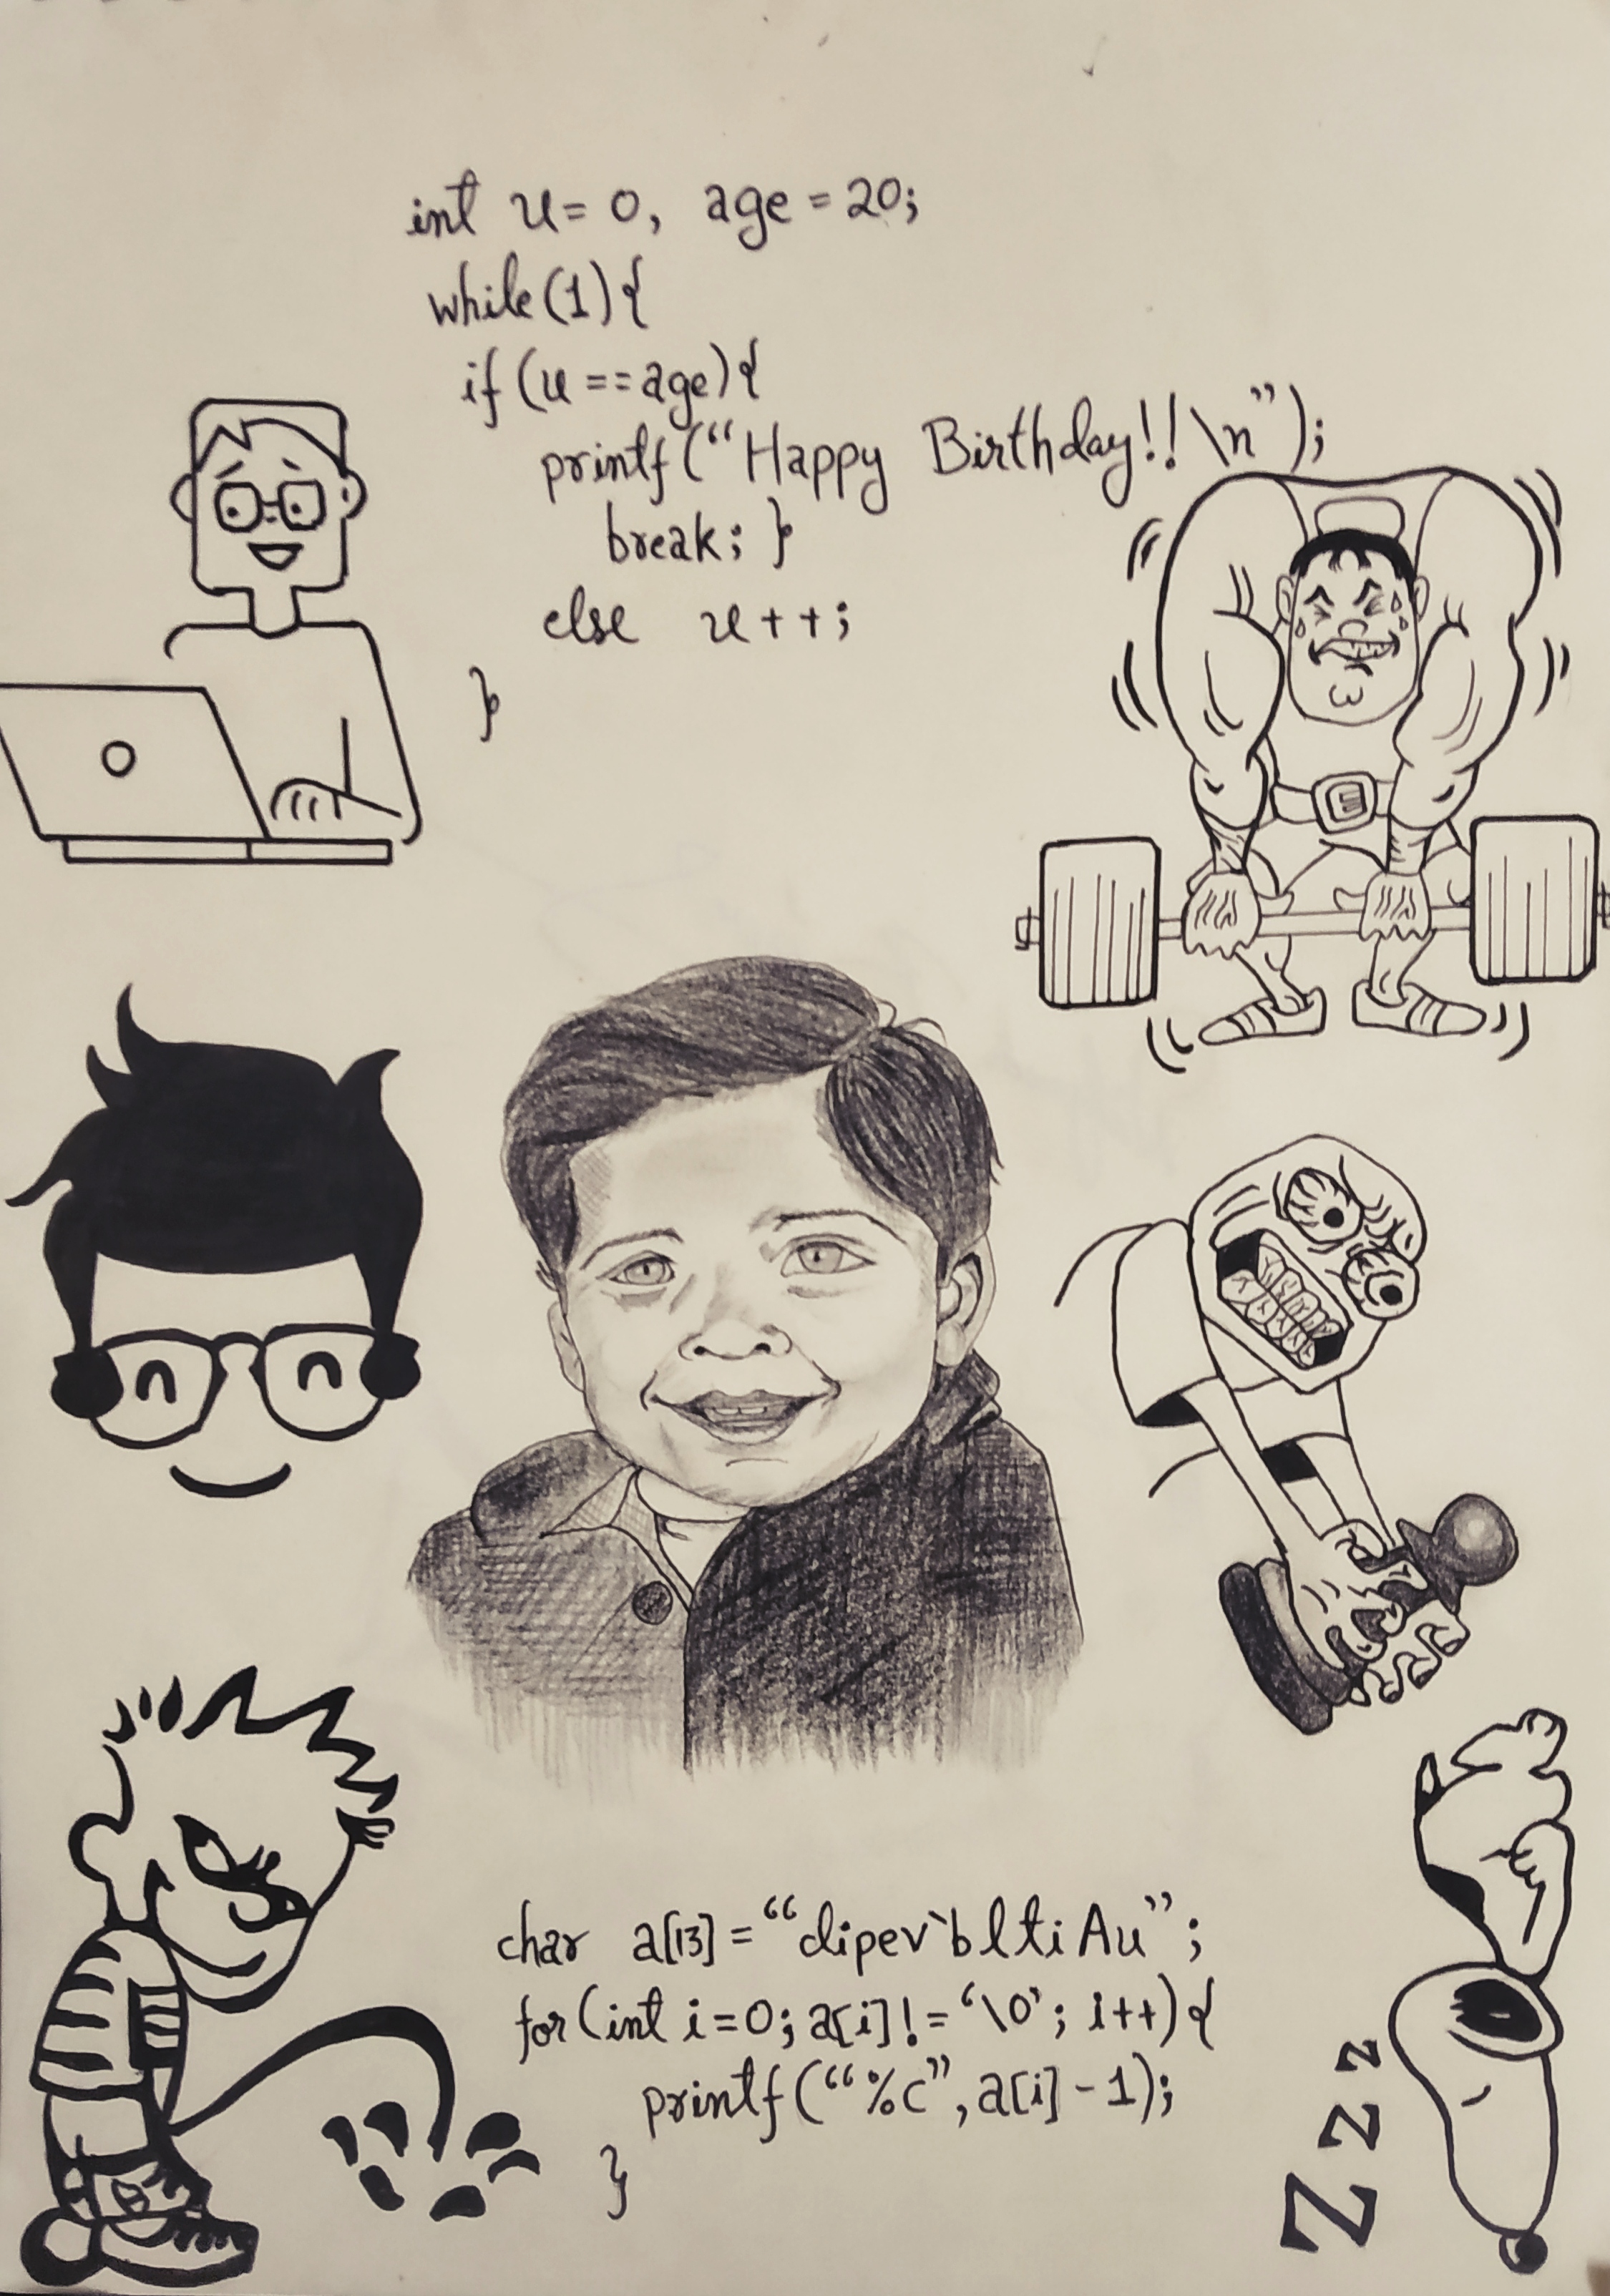 int u = 0, age = 20;
while(1){
if (u == age){
printf("Happy Birthday!! \n");
break; }
else u++;
}
E
char a[13] = "dipev`bltiAu";
for(int i=0; a[i] != '\0'; i++){
printf("%c", a[i] - 1);
}
z
z
Z